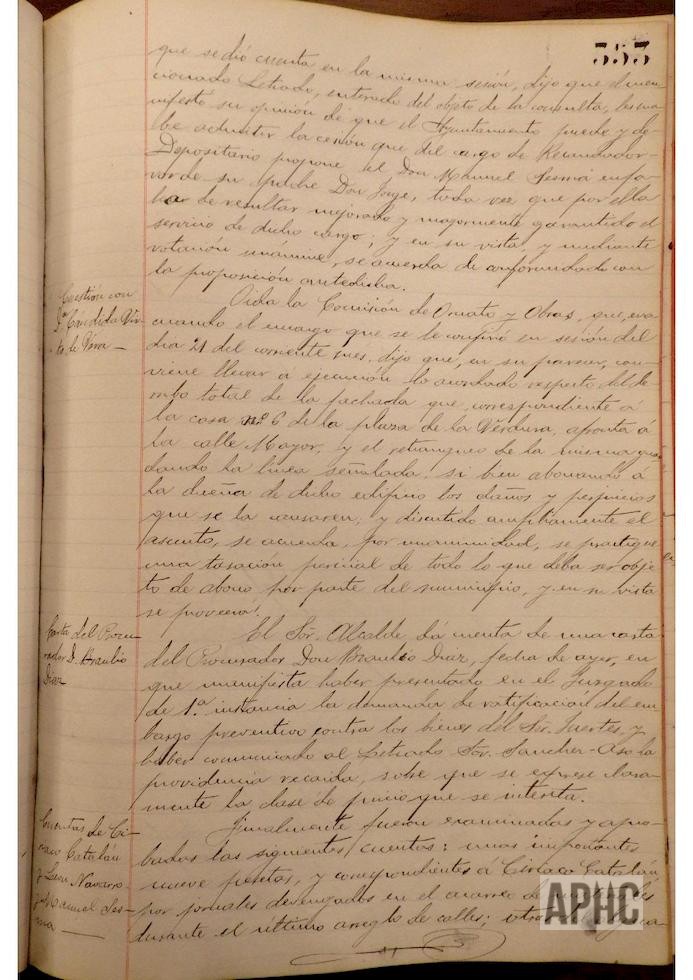 353
que se dió cuenta en la misma sesión, dijo que el men-
cionado Letrado, enterado del objeto de la consulta, les ma-
nifestó su opinión de que el Ayuntamiento puede y de-
be admitir la cesión que del cargo de Recaudador-
Depositario propone el Don Manuel Sesma en fa-
vor de su padre Don Jorge, toda vez que por ella
ha de resultar mejorado y mayormente garantido el
servicio de dicho cargo; y en su vista, y mediante
votación unánime, se acuerda de conformidad con
la proposición antedicha.
Cuestión con
Dª Cándida
de Vera —
Oida la Comisión de Ornato y Obras, que, eva-
cuando el encargo que se le confirió en sesión del
dia 21 del corriente mes, dijo que, en su parecer, con-
viene llevar á ejecución lo acordado respecto del de-
rribo total de la fachada que, correspondiente á
la casa nº 6 de la plaza de la Verdura, afronta á
la calle Mayor, y el retranqueo de la misma guar-
dando la linea señalada, si bien abonando á
la dueña de dicho edificio los daños y perjuicios
que se la causaren; y discutido ampliamente el
asunto, se acuerda, por unanimidad, se practique
una tasación pericial de todo lo que deba ser obje-
to de abono por parte del municipio, y en su vista
se proveerá.
Carta del Procu-
rador D. Braulio
Diaz
El Sor. Alcalde, dá cuenta de una carta
del Procurador Don Braulio Diaz, fecha de ayer, en
que manifiesta haber presentado en el Juzgado
de 1.ª instancia la demanda de ratificación del em-
bargo preventivo contra los bienes del Sor. Fuertes, y
haber comunicado al Letrado Sor. Sanchez-Aso la
providencia recaida, sobre que se exprese clara-
mente la clase de juicio que se intenta.
Cuentas de Ci-
riaco Catalán
y Leon Navarro
y Manuel Ses-
ma —
Finalmente fueron examinadas y apro-
badas las siguientes cuentas: unas importantes
nueve pesetas, y correspondientes á Ciriaco Catalán
por jornales devengados en el acarreo de
durante el último arreglo de calles; otra
APHC